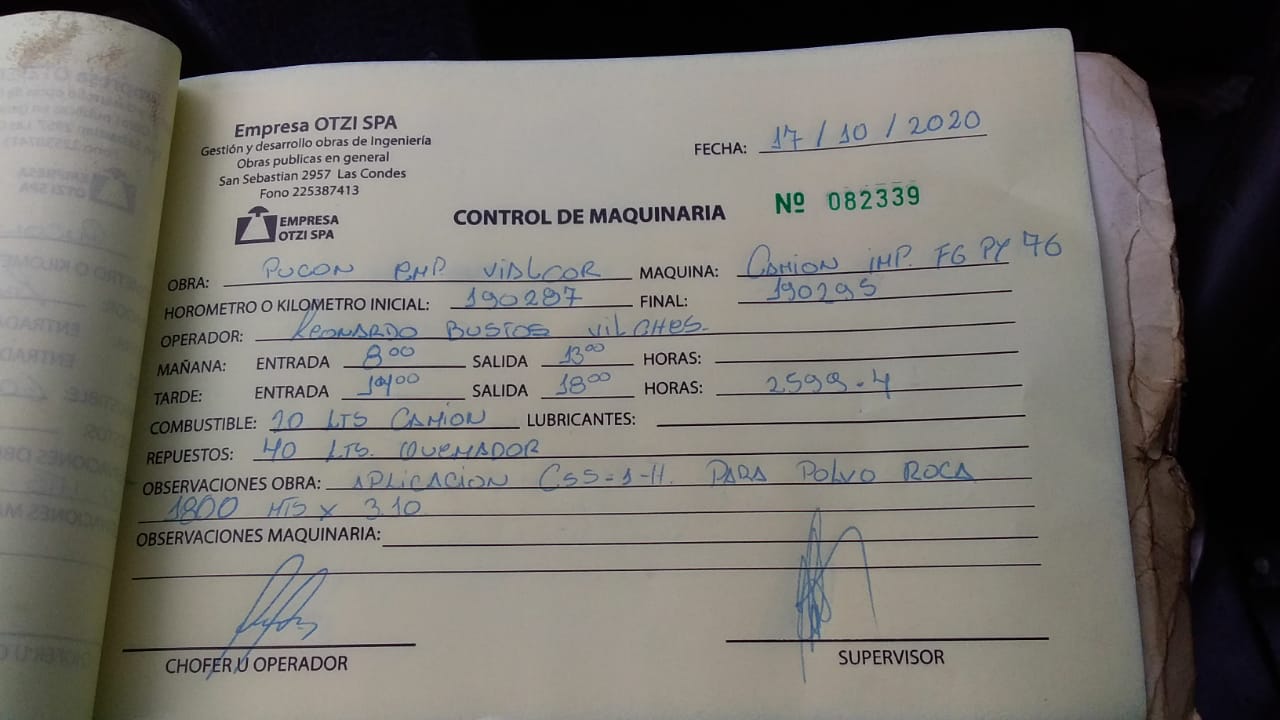 Empresa OTZI SPA
Gestión y desarrollo obras de Ingeniería
Obras publicas en general
San Sebastian 2957 Las Condes
Fono 225387413
EMPRESA
OTZI SPA
FECHA: 17/10/2020
CONTROL DE MAQUINARIA
Nº 082339
OBRA: PUCON EMP VIALCOR MAQUINA: CAMION IMP. FG PY 76
HOROMETRO O KILOMETRO INICIAL: 190287 FINAL: 190295
OPERADOR: LEONARDO BUSTOS VILCHES.
MAÑANA: ENTRADA 800 SALIDA 1300 HORAS:
TARDE: ENTRADA 1400 SALIDA 1800 HORAS: 2599.4
COMBUSTIBLE: LTS CAMION LUBRICANTES:
REPUESTOS: 40 LTS. QUEMADOR
OBSERVACIONES OBRA: APLICACION CSS-1-H. PARA POLVO ROCA
1800 MTS x 3.10
OBSERVACIONES MAQUINARIA:
CHOFER U OPERADOR
SUPERVISOR